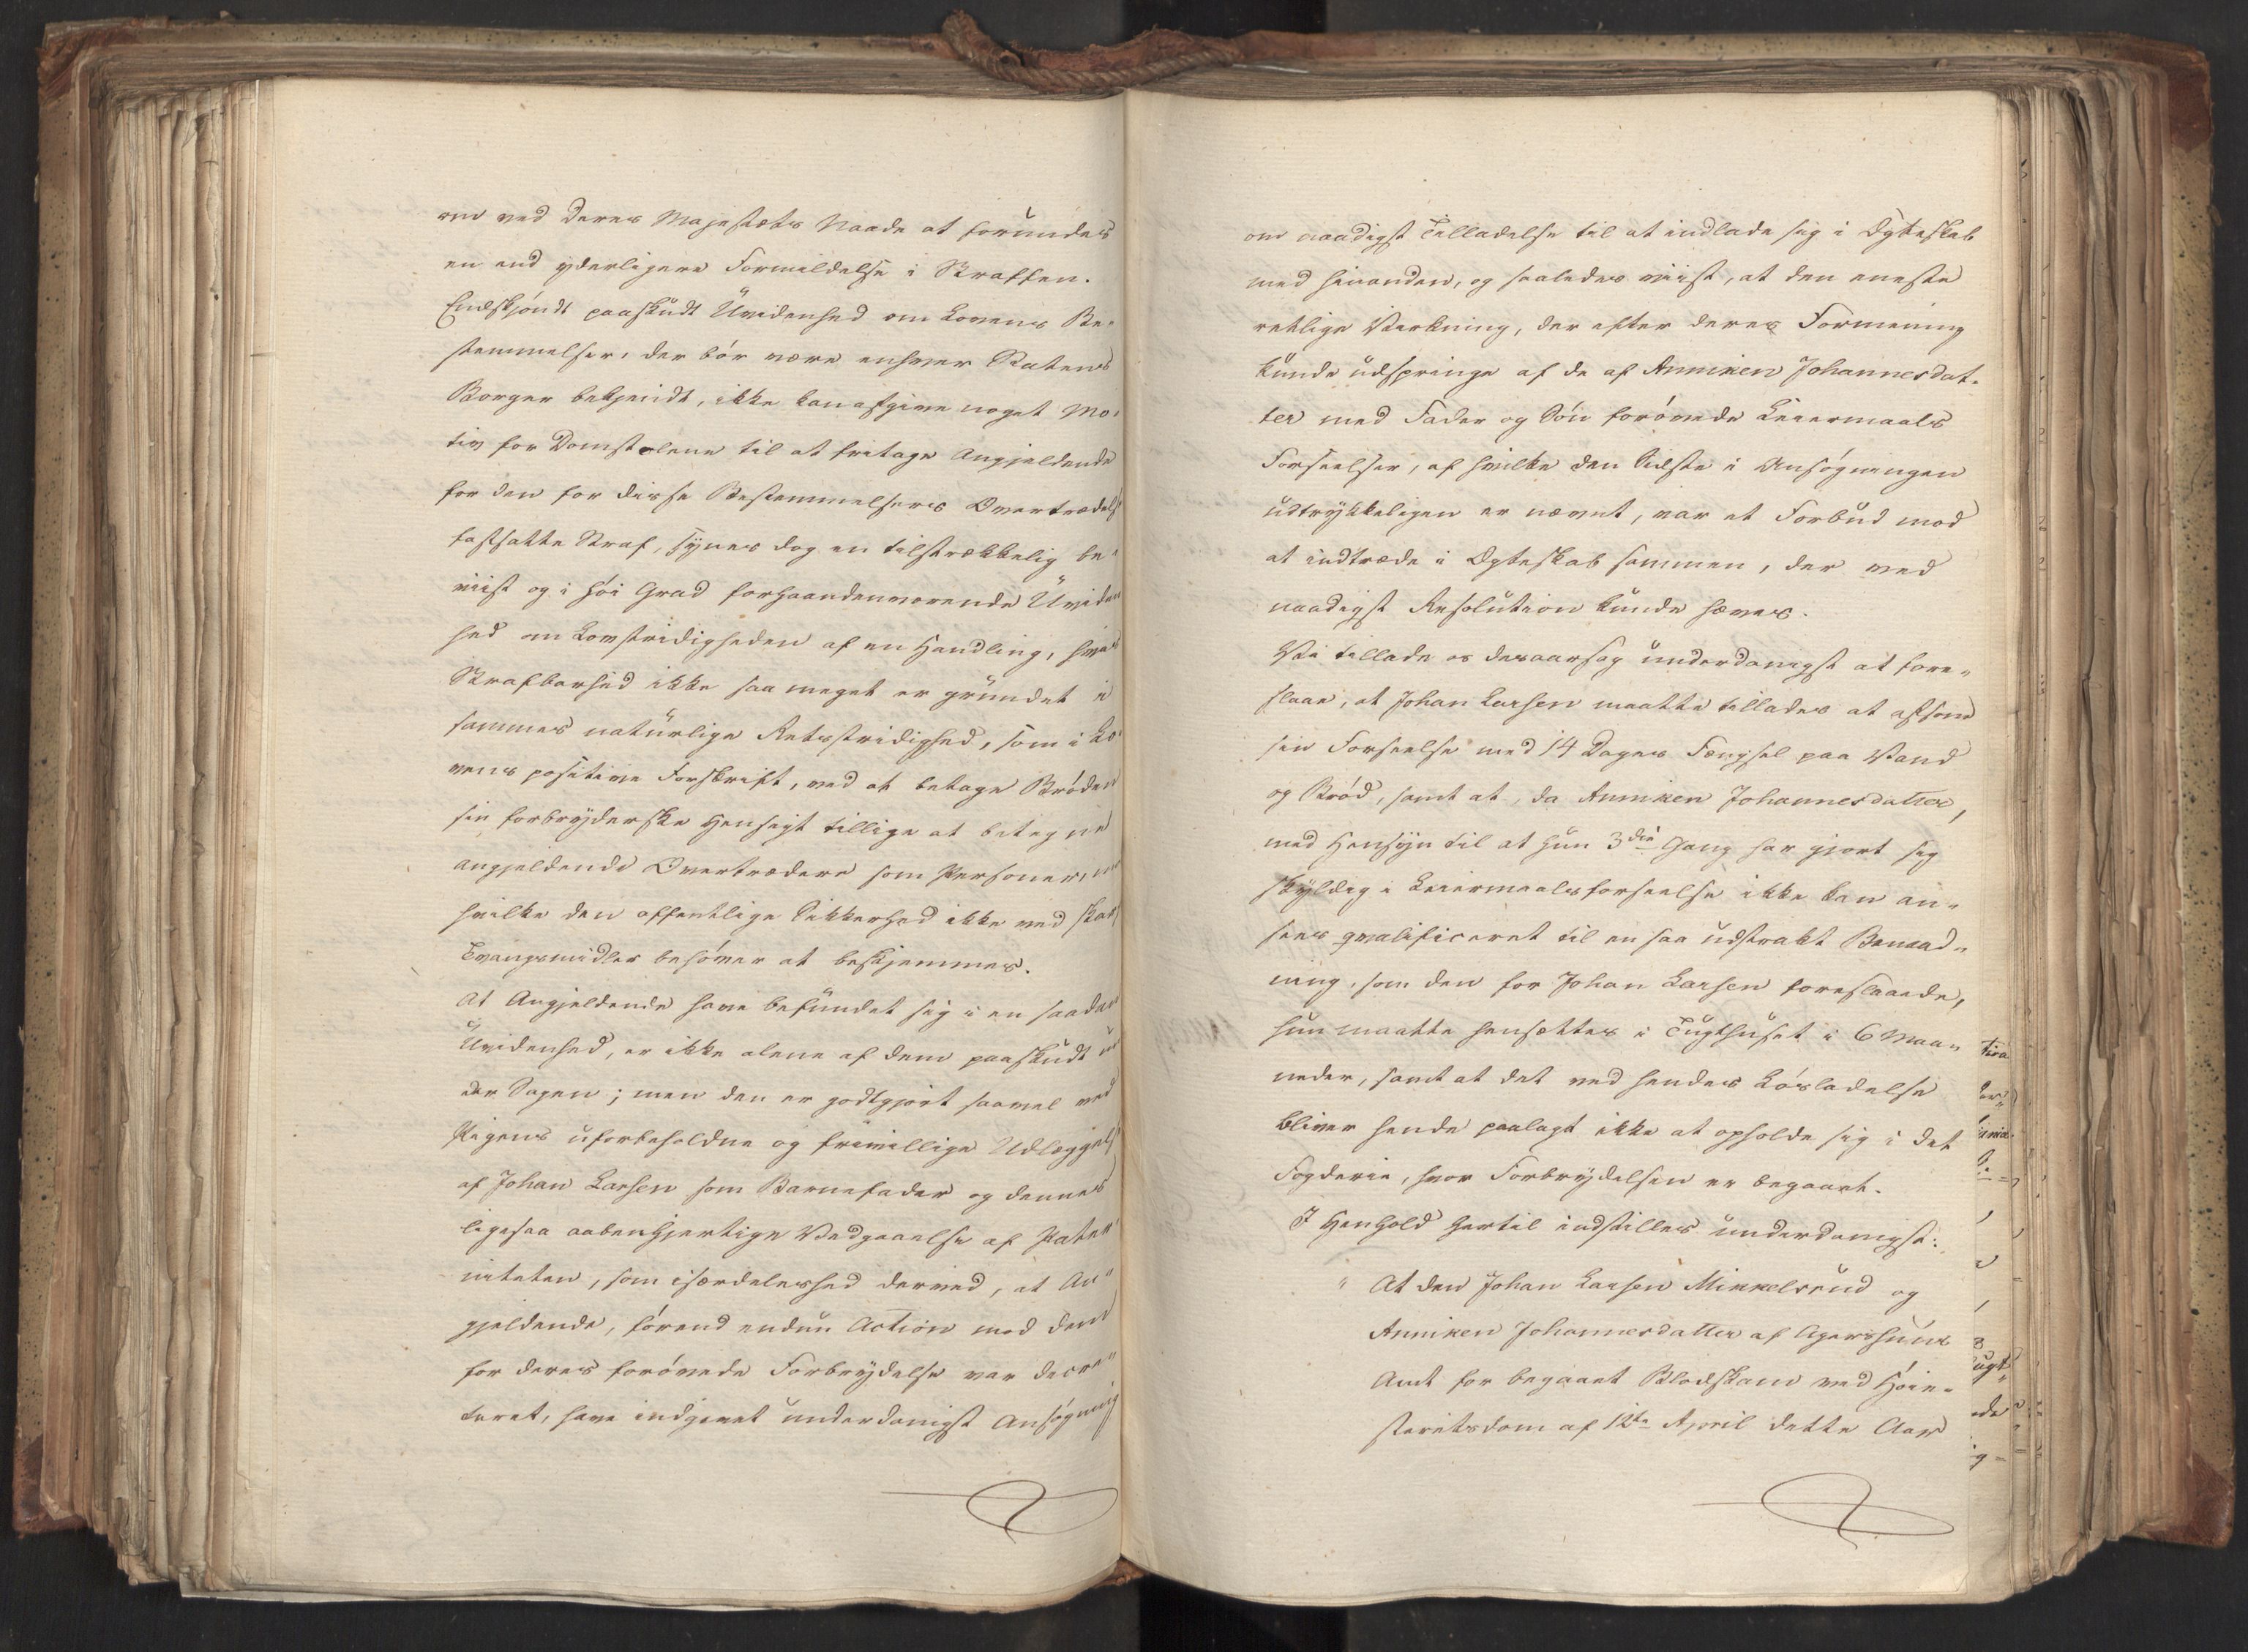 om ved Deres Majestæts Naade at forundes
en end yderligere Formildelse i Straffen.
Endskjøndt paaskudt Uvidenhed om Lovens Be-
stemmelser, der bør være enhver Statens
Borger bekjendt, ikke kan afgive noget Mo-
tiv for Domstolene til at fritage Angjeldende
for den for disse Bestemmelsers Overtrædelse
fastsatte Straf, synes dog en tilstrækkelig be-
viist og i høi Grad forhaandenværende Uviden
hed om Lovstridigheden af en Handling, hvis
Strafbarhed ikke saa meget er grundet i
sammes naturlige Retsstridighed, som i Lo-
vens positive Forskrift, ved at betage Brøden
sin forbryderske Hensigt tillige at betegne
angjeldende Overtrædere som Personer, mod
hvilke den offentlige Sikkerhed ikke ved
Tvangsmidler behøver at beskjermes.
At Angjeldende have befundet sig i en saadan
Uvidenhed, er ikke alene af dem paaskudt un
der Sagen; men den er godtgjort saavel ved
Pigens uforbeholdne og frivillige Udlæggelse
af Johan Larsen som Barnefader og dennes
ligesaa aabenhjertige Vedgaaelse af Pater-
niteten, som især­deleshed derved, at An-
gjeldende, førend endnu Action mod dem
for deres forøvede Forbrydelse var decre-
teret, have indgivet underdanigst Ansøgning
om naadigst Tilladelse til at indlade sig i Ægteskab
med hinanden, og saaledes viist, at den eneste
retlige Virkning, der efter deres Formening
kunde udspringe af de af Anniken Johannesdat-
ter med Fader og Søn forøvede Leiermaals
Forseelser, af hvilke den Sidste i Ansøgningen
udtrykkeligen er nævnt, var et Forbud mod
at indtræde i Ægteskab sammen, der ved
naadigst Resolution kunde hæves.
Vi tillade os desaarsag underdanigst at fore-
slaae, at Johan Larsen maatte tillades at afsone
sin Forseelse med 14 Dages Fængsel paa Vand
og Brød, samt at, da Anniken Johannesdatter,
med Hensyn til at hun 3die Gang har gjort sig
skyldig i Leiermaalsforseelse ikke kan an-
sees qvalificeret til en saa udstrakt Benaad-
ning, som den for Johan Larsen foreslaaede,
hun maatte hensættes i Tugthuset i 6 Maa-
neder, samt at det ved hendes Løsladelse
bliver hende paalagt ikke at opholde sig i det
Fogderie, hvor Forbrydelsen er begaaet.
I Henhold hertil indstilles underdanigst:
" At den Johan Larsen Mikkelsrud og
Anniken Johannesdatter af Agershuus
Amt for begaaet Blodskam ved Høie-
steretsdom af 12te April dette Aar